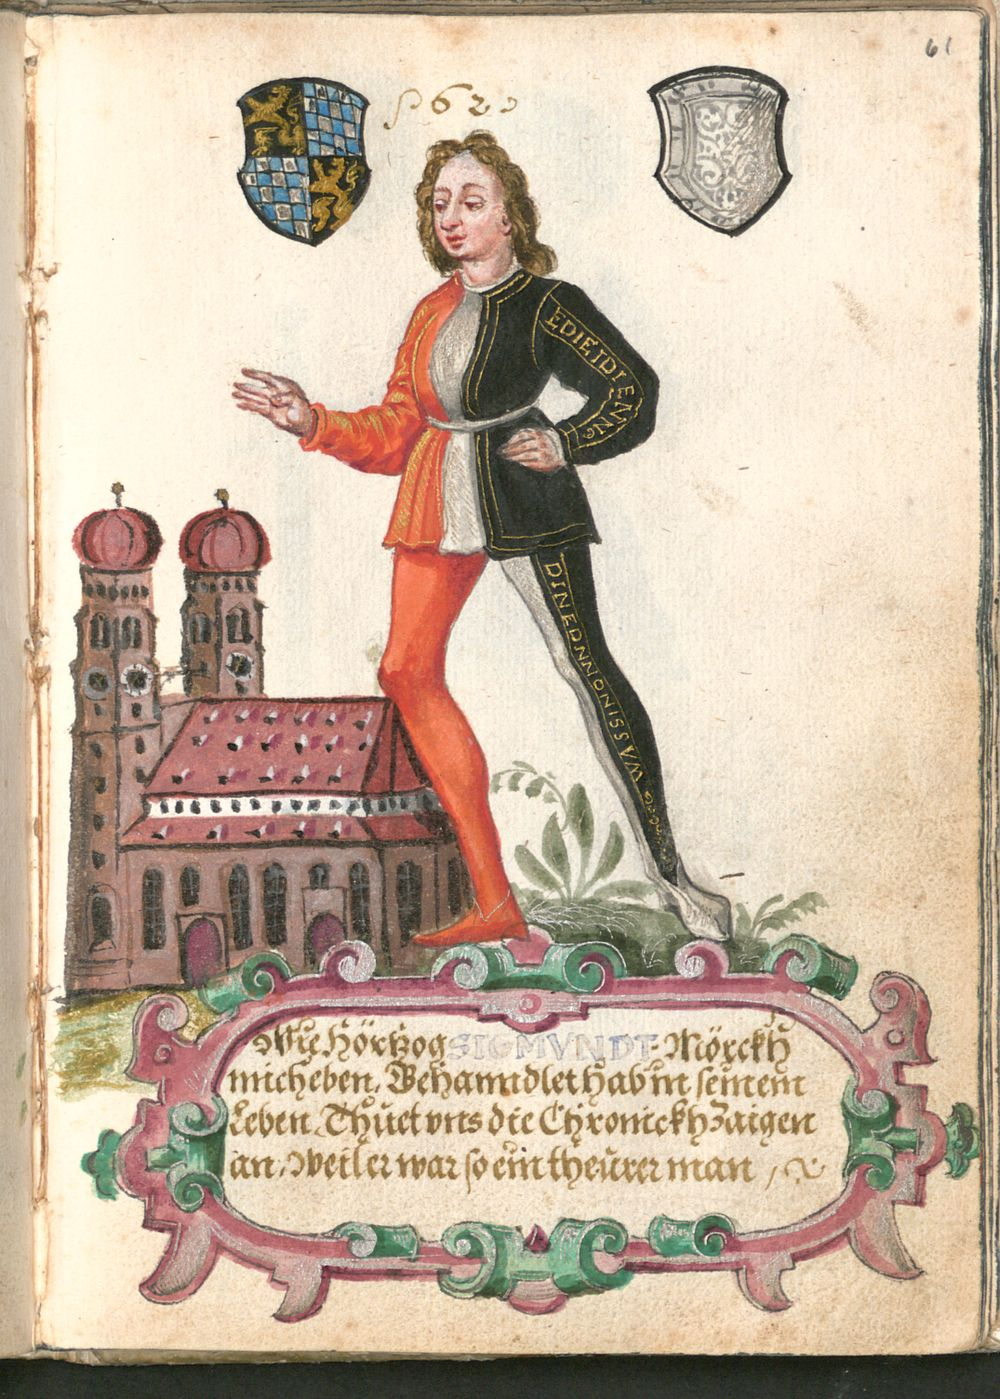 61
162
EDIEIDIENN
DINEDNNONISSVM
Wie Hörtzog SIGMVNDT Mörckh
mich eben, Behanndlet hab in seinem
Leben Thuet vns die Chronickh Zaigen
an, Weil er war so ein theurer man